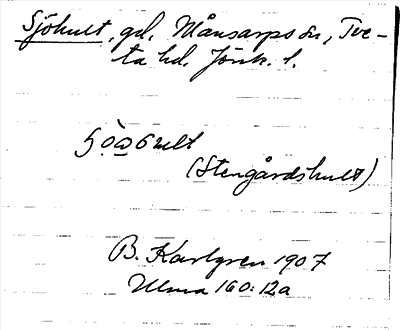 Sjöhult, gd, Månsarps sn, Tve-
ta hd. Jönk. l.
(Stengårdshult)
B. Karlgren 1907
Ulma 160:12a